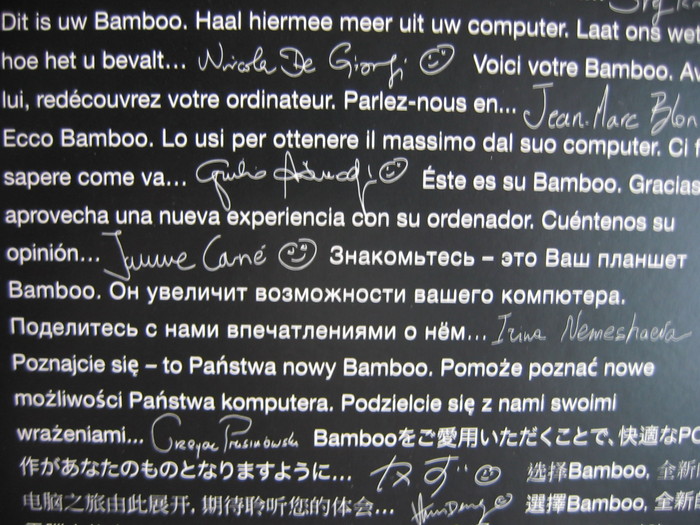 Dit is uw Bamboo. Haal hiermee meer uit uw computer. Laat ons wet
hoe het u bevalt... Nicola De Giorgi Voici votre Bamboo. Av
lui, redécouvrez votre ordinateur. Parlez-nous en... Jean-Marc Blon
Ecco Bamboo. Lo usi per ottenere il massimo dal suo computer. Ci f
sapere come va... Éste es su Bamboo. Gracias
aprovecha una nueva experiencia con su ordenador. Cuéntenos su
opinión... Знакомьтесь – это Ваш планшет
Bamboo. Он увеличит возможности вашего компютера.
Поделитесь с нами впечатлениями о нём... Irina Nemeshaeva
Poznajcie się – to Państwa nowy Bamboo. Pomoże poznać nowe
możliwości Państwa komputera. Podzielcie się z nami swoimi
wrażeniami... Bambooをご愛用いただくことで、快適なPC
作があなたのものとなりますように... 选择Bamboo, 全新的
电脑之旅由此展开, 期待聆听您的体会... 選擇Bamboo, 全新的